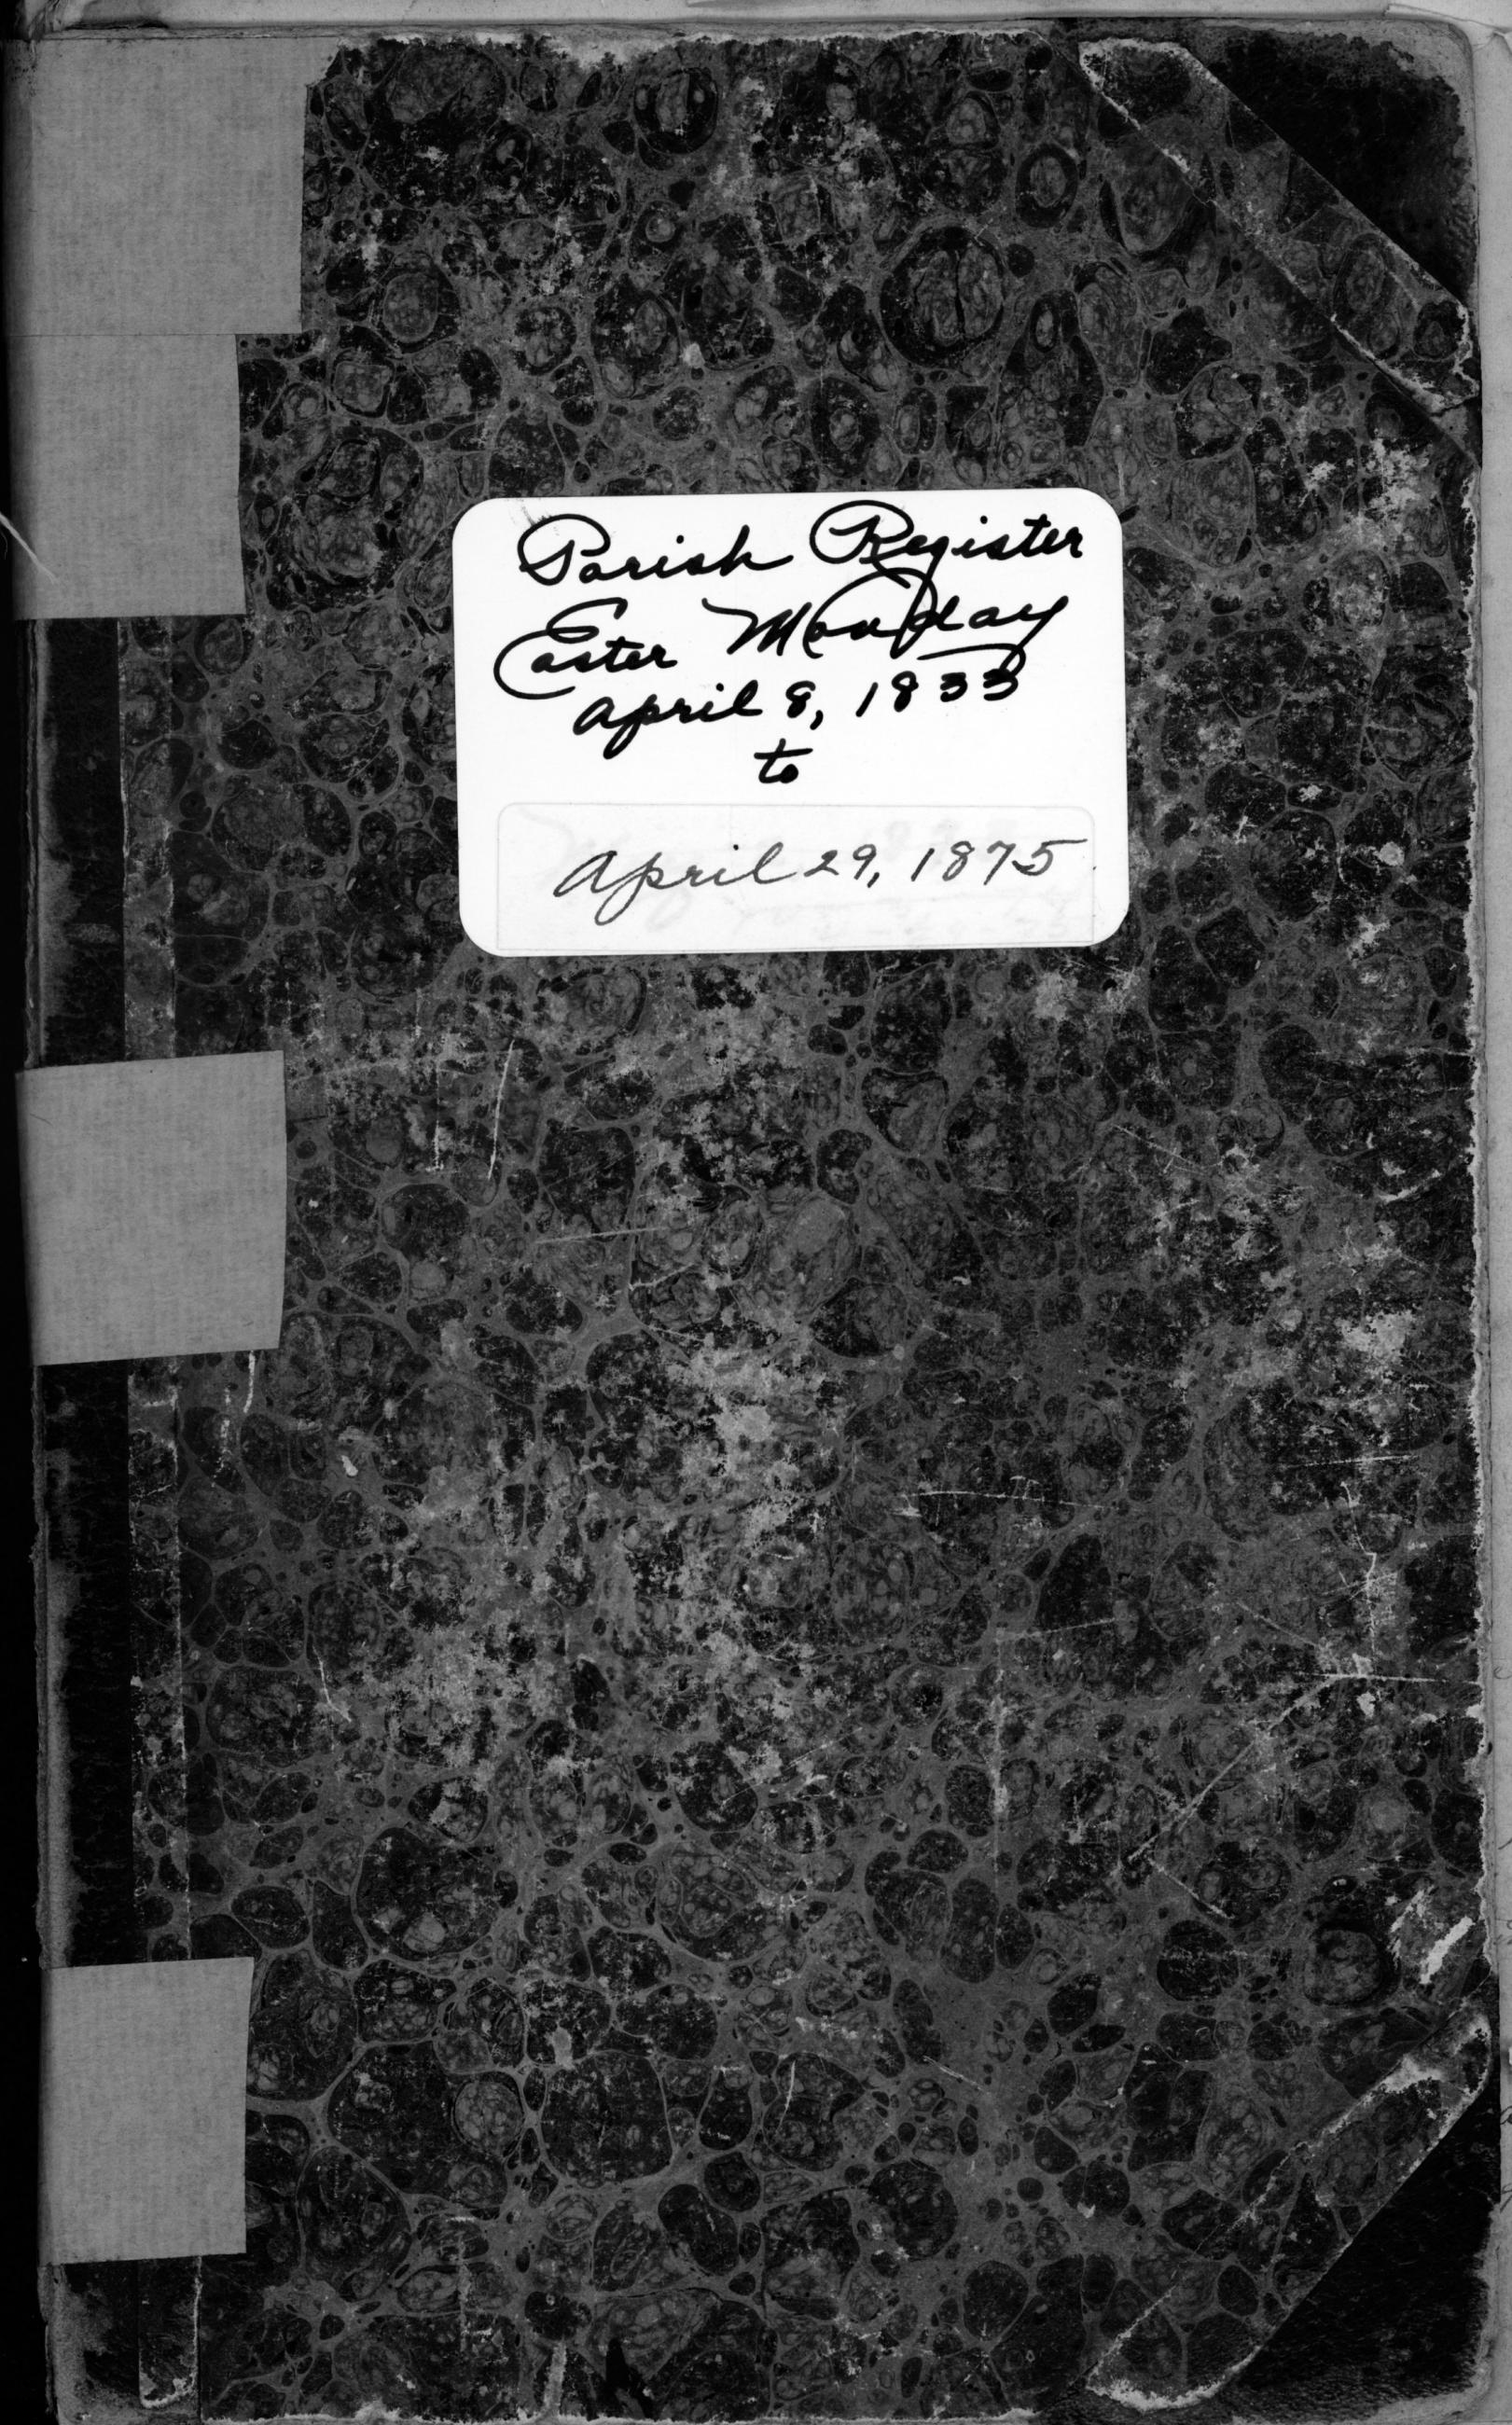 Parish Register
Easter Monday
April 8, 1833
to
April 29, 1875